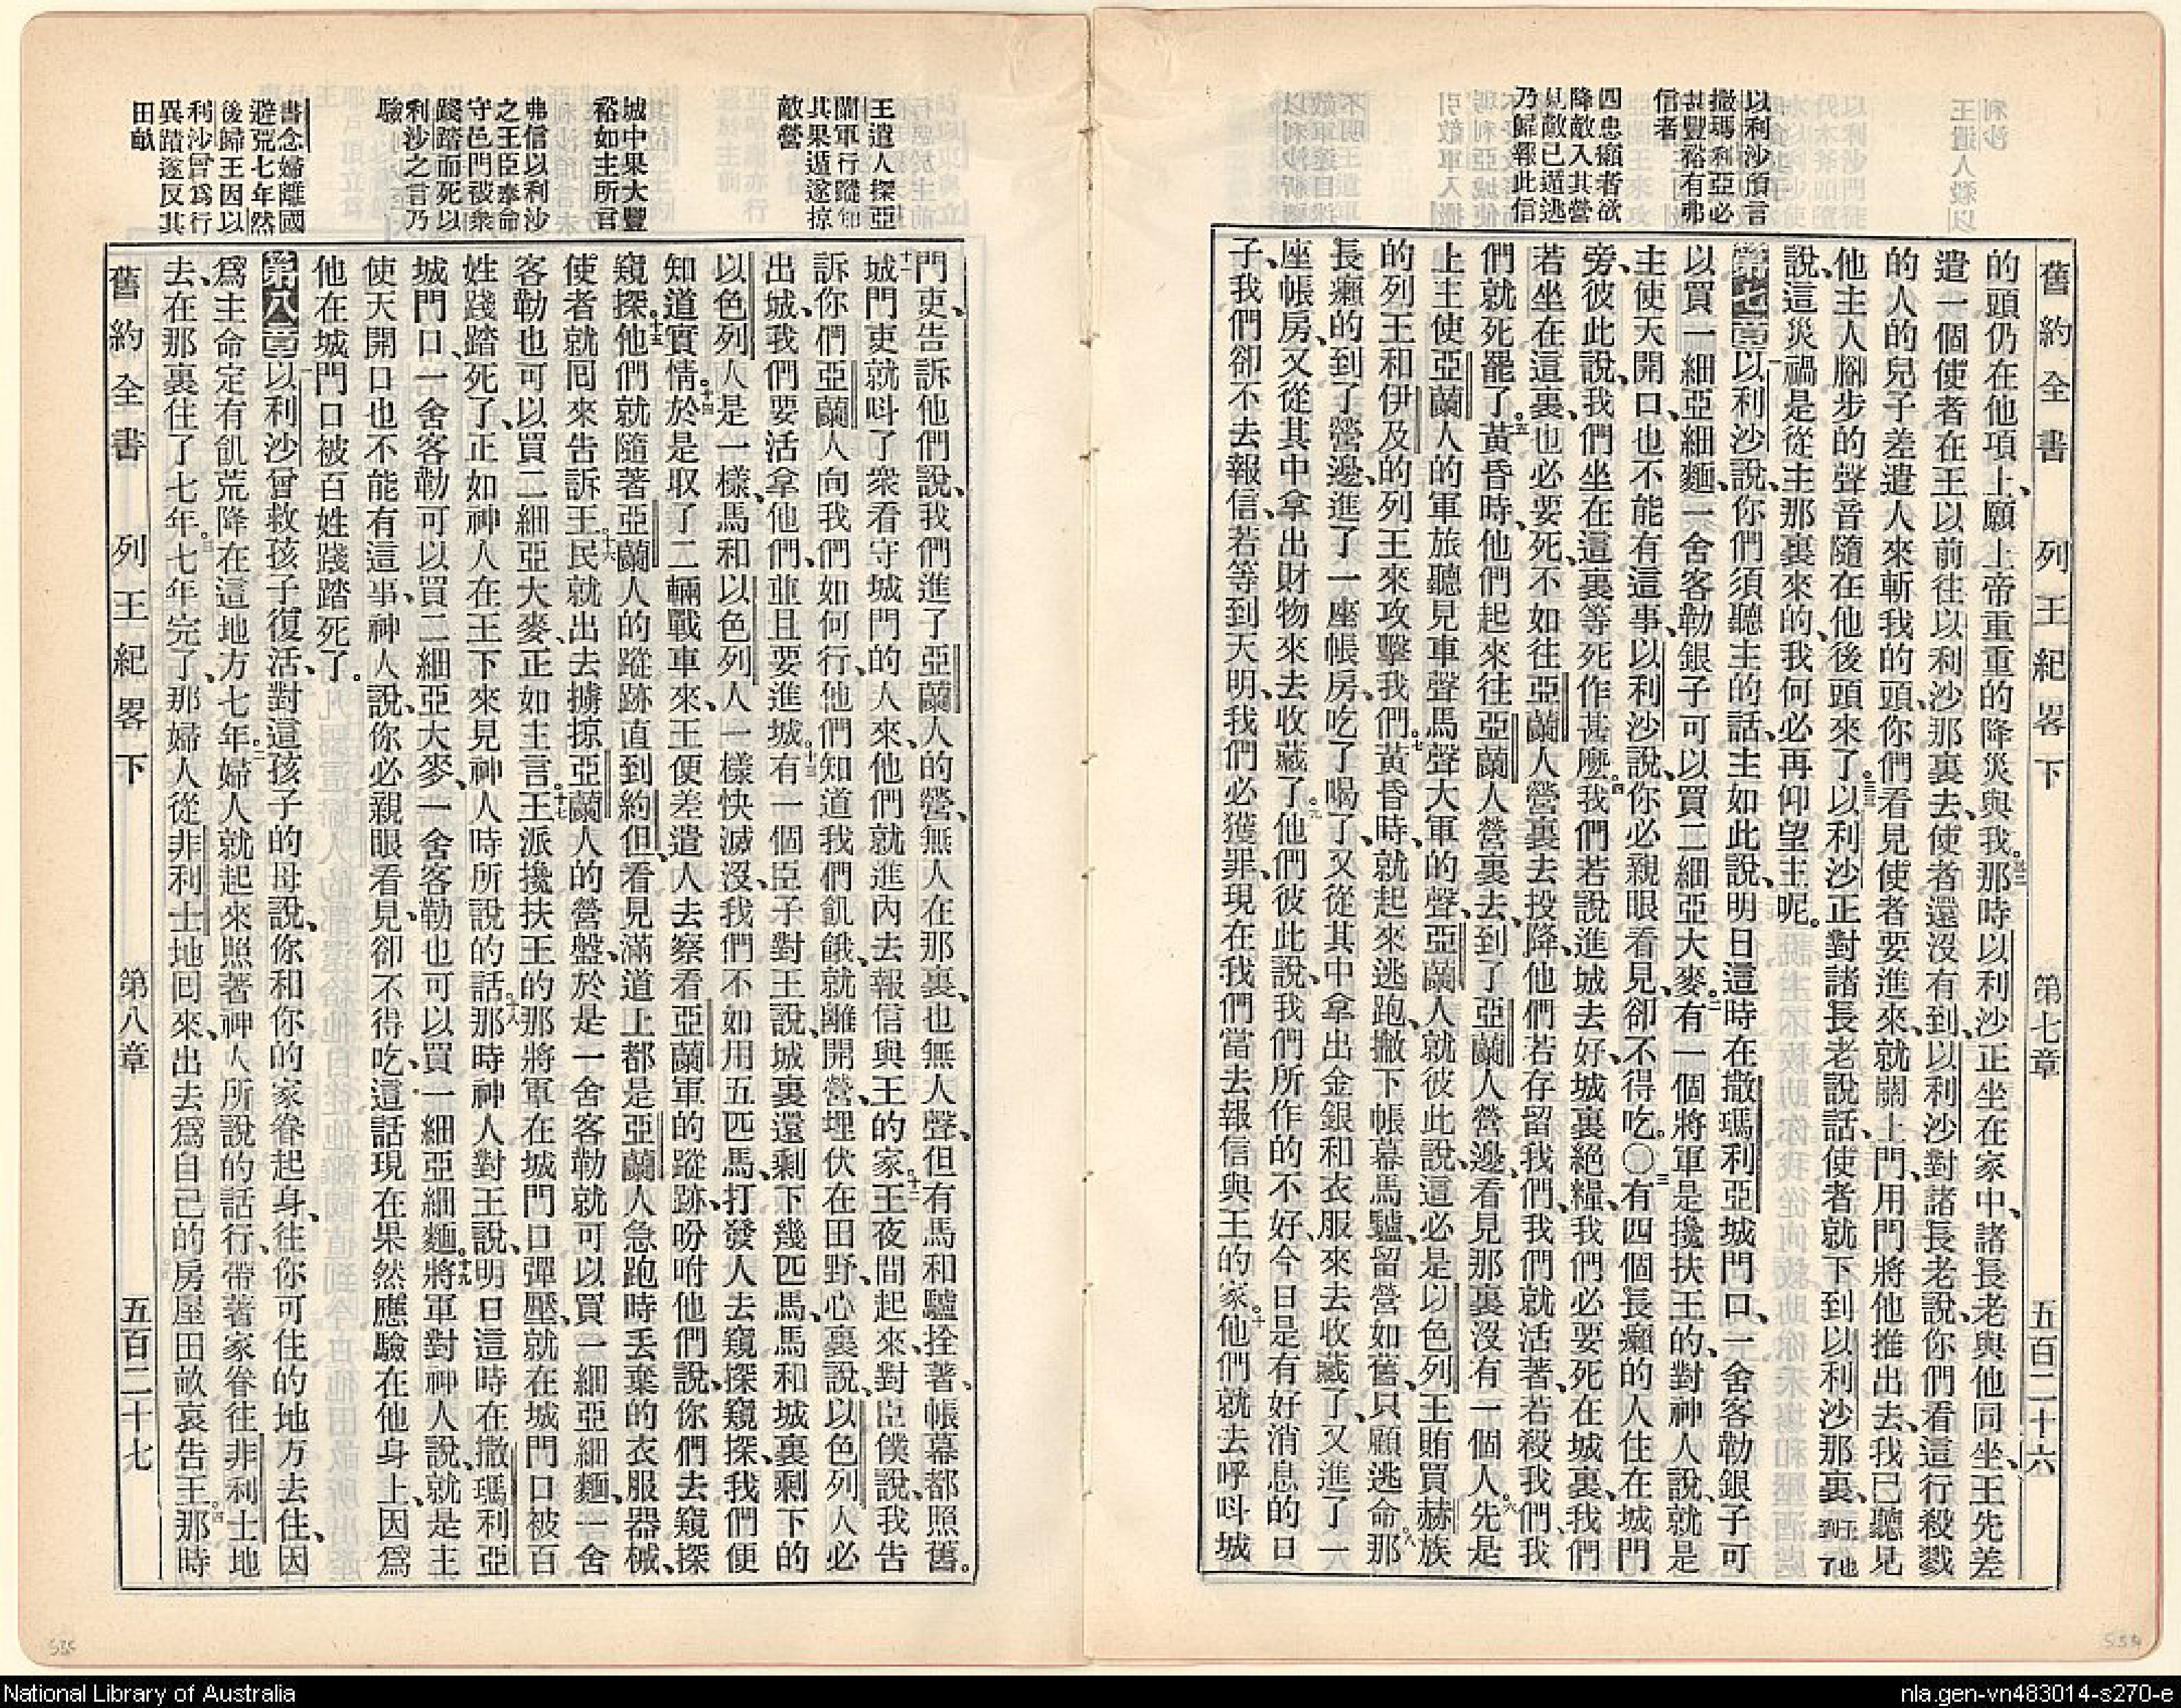 舊約全書 列王紀畧下 第七章 五百二十六
以利沙預言
撒瑪利亞必
甚豐裕有弗
信者
四忠癩者欲
降敵入其營
見敵已遁逃
乃歸報此信
的頭仍在他項上、願上帝重重的降災與我。那時以利沙正坐在家中、諸長老與他同坐、王先差
遣一個使者在王以前往以利沙那裏去、使者還沒有到、以利沙對諸長老說、你們看這行殺戮
的人的兒子差遣人來斬我的頭、你們看見使者要進來、就關上門、用門將他推出去、我已聽見
他主人腳步的聲音隨在他後頭來了。三十三以利沙正對諸長老說話、使者就下到以利沙那裏、王也到了
說、這災禍是從主那裏來的、我何必再仰望主呢。
第七章一以利沙說、你們須聽主的話、主如此說、明日這時在撒瑪利亞城門口、一舍客勒銀子可
以買一細亞細麵、一舍客勒銀子可以買二細亞大麥。二有一個將軍是攙扶王的、對神人說、就是
主使天開口、也不能有這事、以利沙說、你必親眼看見、卻不得吃。○三有四個長癩的人住在城門
旁、彼此說、我們坐在這裏等死作甚麼。四我們若說進城去好、城裏絕糧、我們必要死在城裏、我們
若坐在這裏、也必要死、不如往亞蘭人營裏去投降、他們若存留我們、我們就活著、若殺我們、我
們就死罷了。五黃昏時、他們起來往亞蘭人營裏去、到了亞蘭人營邊、看見那裏沒有一個人。六先是
上主使亞蘭人的軍旅聽見車聲馬聲大軍的聲、亞蘭人就彼此說、這必是以色列王賄買赫族
的列王和伊及的列王來攻擊我們。七黃昏時、就起來逃跑、撇下帳幕馬驢、留營如舊、只顧逃命。八那
長癩的到了營邊、進了一座帳房、吃了喝了、又從其中拿出金銀和衣服來去收藏了、又進了一
座帳房、又從其中拿出財物來去收藏了。九他們彼此說、我們所作的不好、今日是有好消息的日
子、我們卻不去報信、若等到天明、我們必獲罪、現在我們當去報信與王的家。十他們就去呼呌城
王遣人探亞
蘭軍行蹤知
其果遁遂掠
敵營
城中果大豐
裕如主所言
弗信以利沙
之王臣奉命
守邑門被衆
踐踏而死以
利沙之言乃
驗
書念婦離國
避荒七年然
後歸王因以
利沙曾爲行
異蹟遂反其
田畝
門吏、告訴他們說、我們進了亞蘭人的營、無人在那裏、也無人聲、但有馬和驢拴著、帳幕都照舊。
十一城門吏就呌了衆看守城門的人來、他們就進內去報信與王的家。十二王夜間起來、對臣僕說、我告
訴你們、亞蘭人向我們如何行、他們知道我們飢餓、就離開營、埋伏在田野、心裏說、以色列人必
出城、我們要活拿他們、並且要進城。十三有一個臣子對王說、城裏還剩下幾匹馬、馬和城裏剩下的
以色列人是一樣、馬和以色列人一樣快滅沒、我們不如用五匹馬、打發人去窺探窺探、我們便
知道實情。十四於是取了二輛戰車來、王便差遣人去察看亞蘭軍的蹤跡、吩咐他們說、你們去窺探
窺探。十五他們就隨著亞蘭人的蹤跡直到約但、看見滿道上都是亞蘭人急跑時丟棄的衣服器械、
使者就回來告訴王。十六民就出去擄掠亞蘭人的營盤、於是一舍客勒就可以買一細亞細麵、一舍
客勒也可以買二細亞大麥、正如主言。十七王派攙扶王的那將軍在城門口彈壓、就在城門口被百
姓踐踏死了、正如神人在王下來見神人時所說的話。十八那時神人對王說、明日這時在撒瑪利亞
城門口、一舍客勒可以買二細亞大麥、一舍客勒也可以買一細亞細麵。十九將軍對神人說、就是主
使天開口也不能有這事、神人說、你必親眼看見、卻不得吃、這話現在果然應驗在他身上、因爲
他在城門口被百姓踐踏死了。
第八章一以利沙曾救孩子復活、對這孩子的母說、你和你的家眷起身、往你可住的地方去住、因
爲主命定有飢荒降在這地方七年。二婦人就起來照著神人所說的話行、帶著家眷往非利士地
去、在那裏住了七年。三七年完了、那婦人從非利士地回來、出去爲自己的房屋田畝哀告王。四那時
舊約全書 列王紀畧下 第八章 五百二十七
535
534
National Library of Australia
nla.gen-vn483014-s270-e